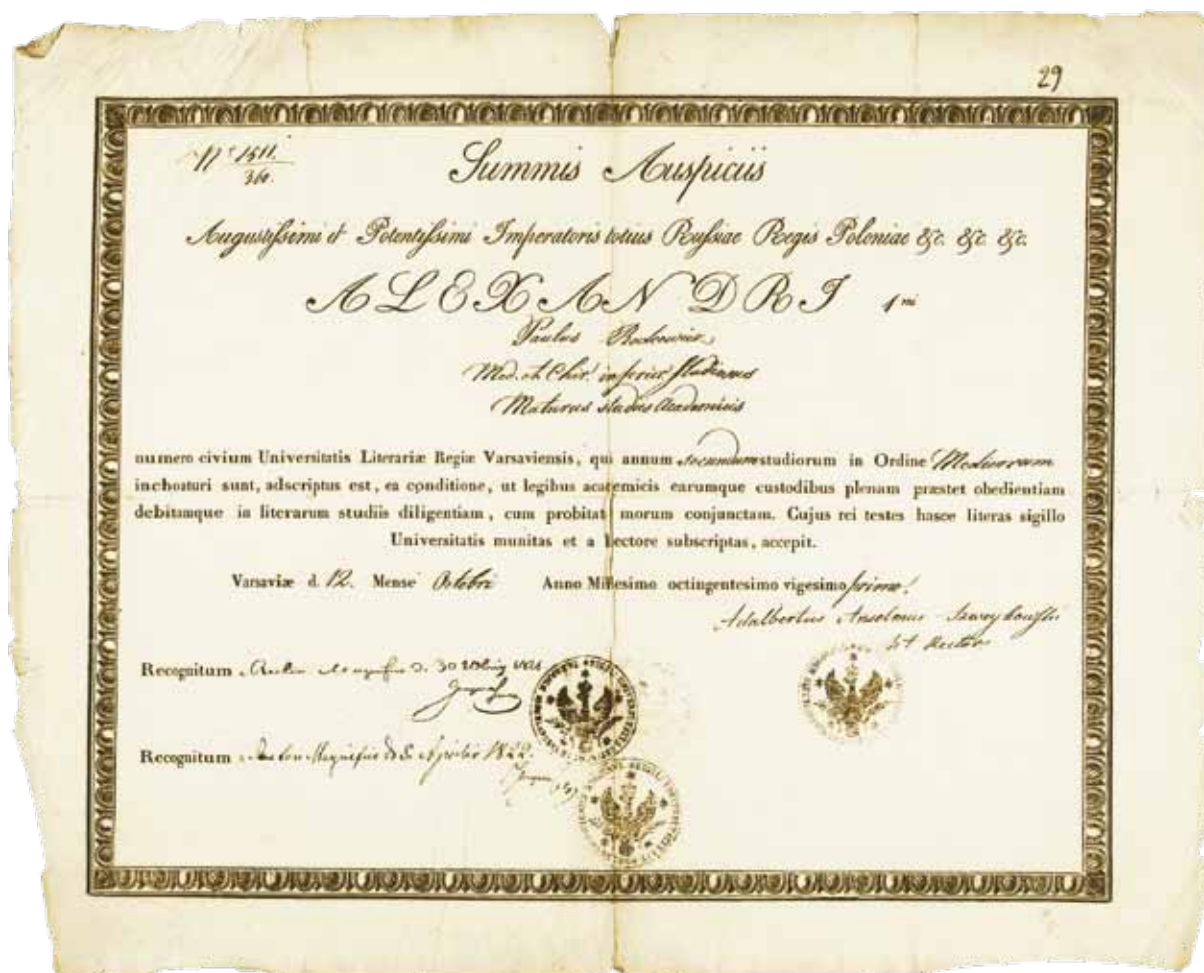 29
Nº 1511.
360.
Summis Auspiciis
Augustissimi et Potentissimi Imperatoris totius Russiae Regis Poloniae &c. &c. &c.
ALEXANDRI 1mi
Paulus
Med. et Chir. inferior
Maturus studiis Academicis
numero civium Universitatis Literariæ Regiæ Varsaviensis, qui annum secundum studiorum in Ordine Medicorum
inchoaturi sunt, adscriptus est, ea conditione, ut legibus academicis earumque custodibus plenam præstet obedientiam
debitamque in literarum studiis diligentiam, cum probitat morum conjunctam. Cujus rei testes hasce literas sigillo
Universitatis munitas et a Rectore subscriptas, accepit.
Varsaviæ d. 12. Mense Octobri Anno Millesimo octingentesimo vigesimo primo.
Adalbertus Anselmus Szweykowski
Rector
Recognitum Rector d. 30
Recognitum Rector Magnificus Aprilis 1822.